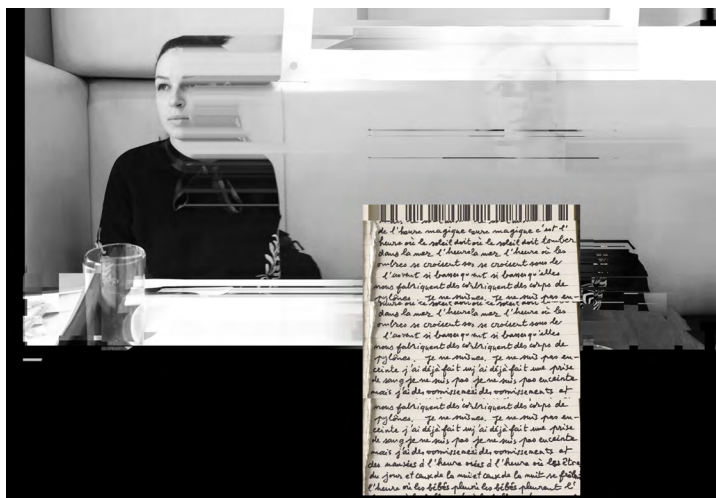 de l'heure magique eure magique c'est l'
heure où le soleil doit où le soleil doit tomber
dans la mer l'heure la mer. l'heure où les
ombres se croisent ses se croisent sous le
l'auvent si basses qu'elles
nous fabriquent des corps de
pylônes. Je ne suis pas en-
dans la mer l'heure la mer. l'heure où les
ombres se croisent ses se croisent sous le
l'auvent si basses qu'elles
nous fabriquent des corps de
pylônes. Je ne suis pas en-
ceinte j'ai déjà fait uj'ai déjà fait une prise
de sang je ne suis pas je ne suis pas enceinte
mais j'ai des vomissements des vomissements et
nous fabriquent des corps de
pylônes. Je ne suis pas en-
ceinte j'ai déjà fait uj'ai déjà fait une prise
de sang je ne suis pas je ne suis pas enceinte
mais j'ai des vomissements des vomissements et
des nausées à l'heure à l'heure où les être
du jour et ceux de la nuit et ceux de la nuit se
l'heure où les bébés pleu où les bébés pleurent l'